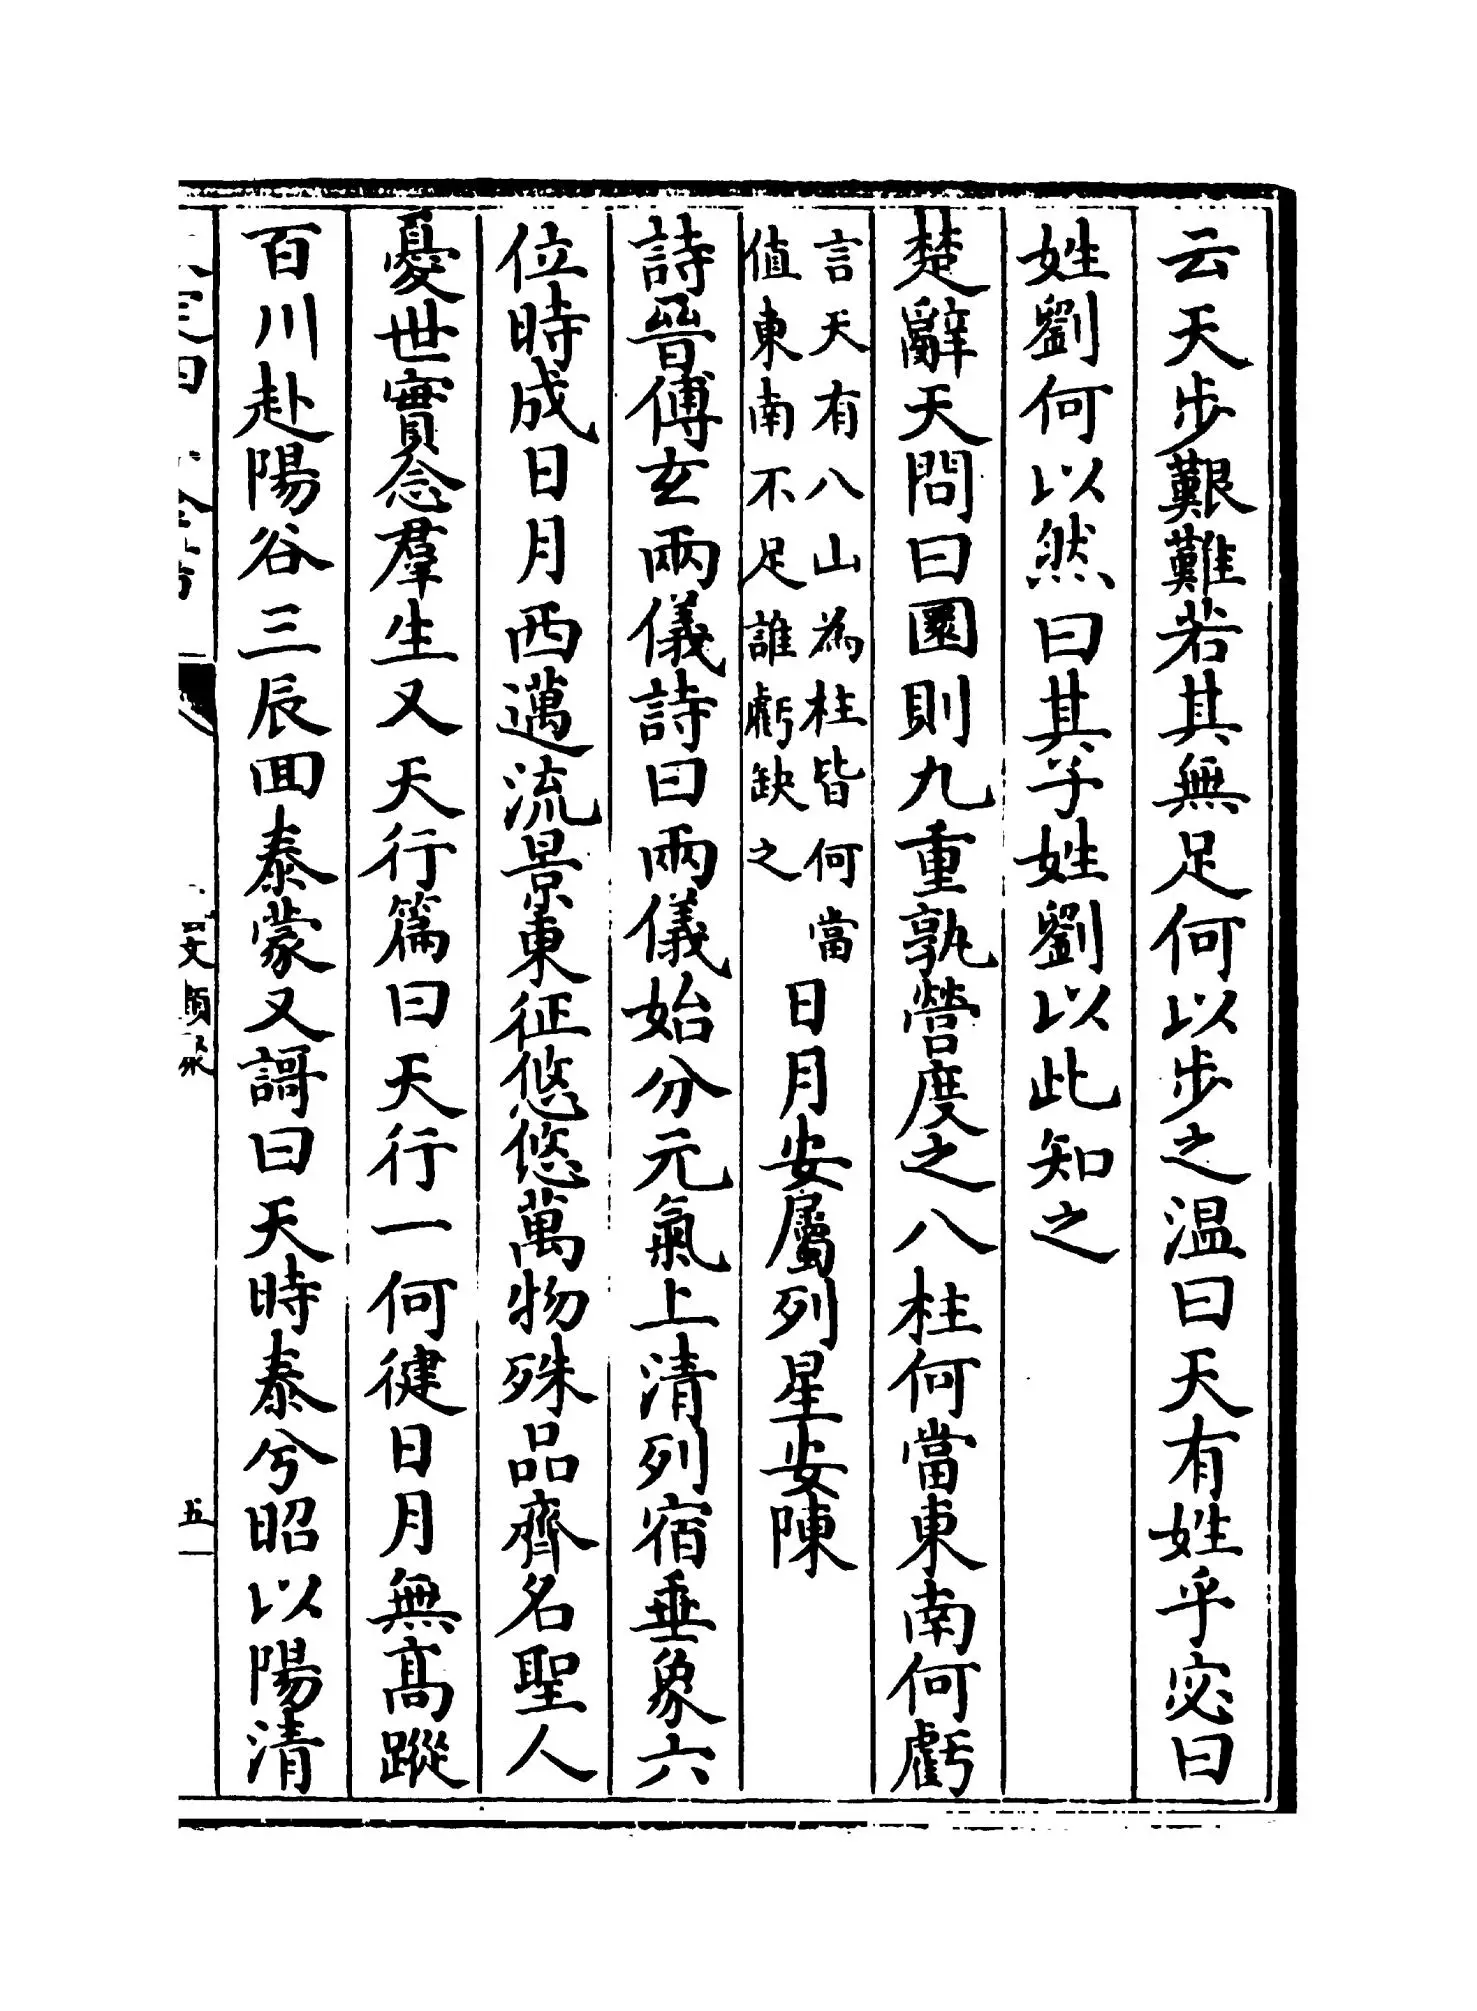 云天步艱難若其無足何以步之温曰天有姓乎宓曰
姓劉何以然曰其子姓劉以此知之
楚辭天問曰圜則九重孰營度之八柱何當東南何虧
言天有八山為柱皆何當
值東南不足誰虧缺之
日月安屬列星安陳
詩晉傅玄兩儀詩曰兩儀始分元氣上清列宿垂象六
位時成日月西邁流景東征悠悠萬物殊品齊名聖人
憂世實念羣生又天行篇曰天行一何健日月無高蹤
百川赴陽谷三辰回泰蒙又謌曰天時泰兮昭以陽清
五